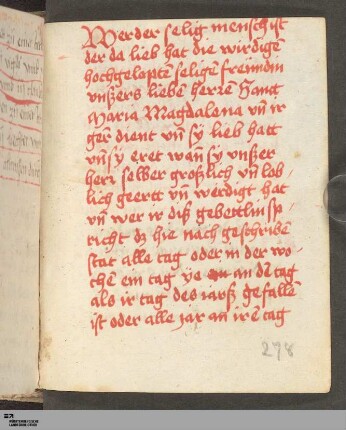 Werder selig mensch ist
der da lieb hat die wirdigē
hochgelaptē seligē freundin
vnßers liebē herrē Sant
Maria Magdalena vn̄ ir
gern dient vn̄ sy lieb hatt
vn̄ sy eret wan̄ sy vnßer
herr selber groslich vn̄ lob
lich geertt vn̄ werdigt hat
vn̄ wer ir diß gebettlin sp-
richt dz hie nach geschribē
stat alle tag oder in der wo-
chē ein tag ye an dē tag
als ir tag des iarß gefallē
ist oder alle jar an irē tag
278